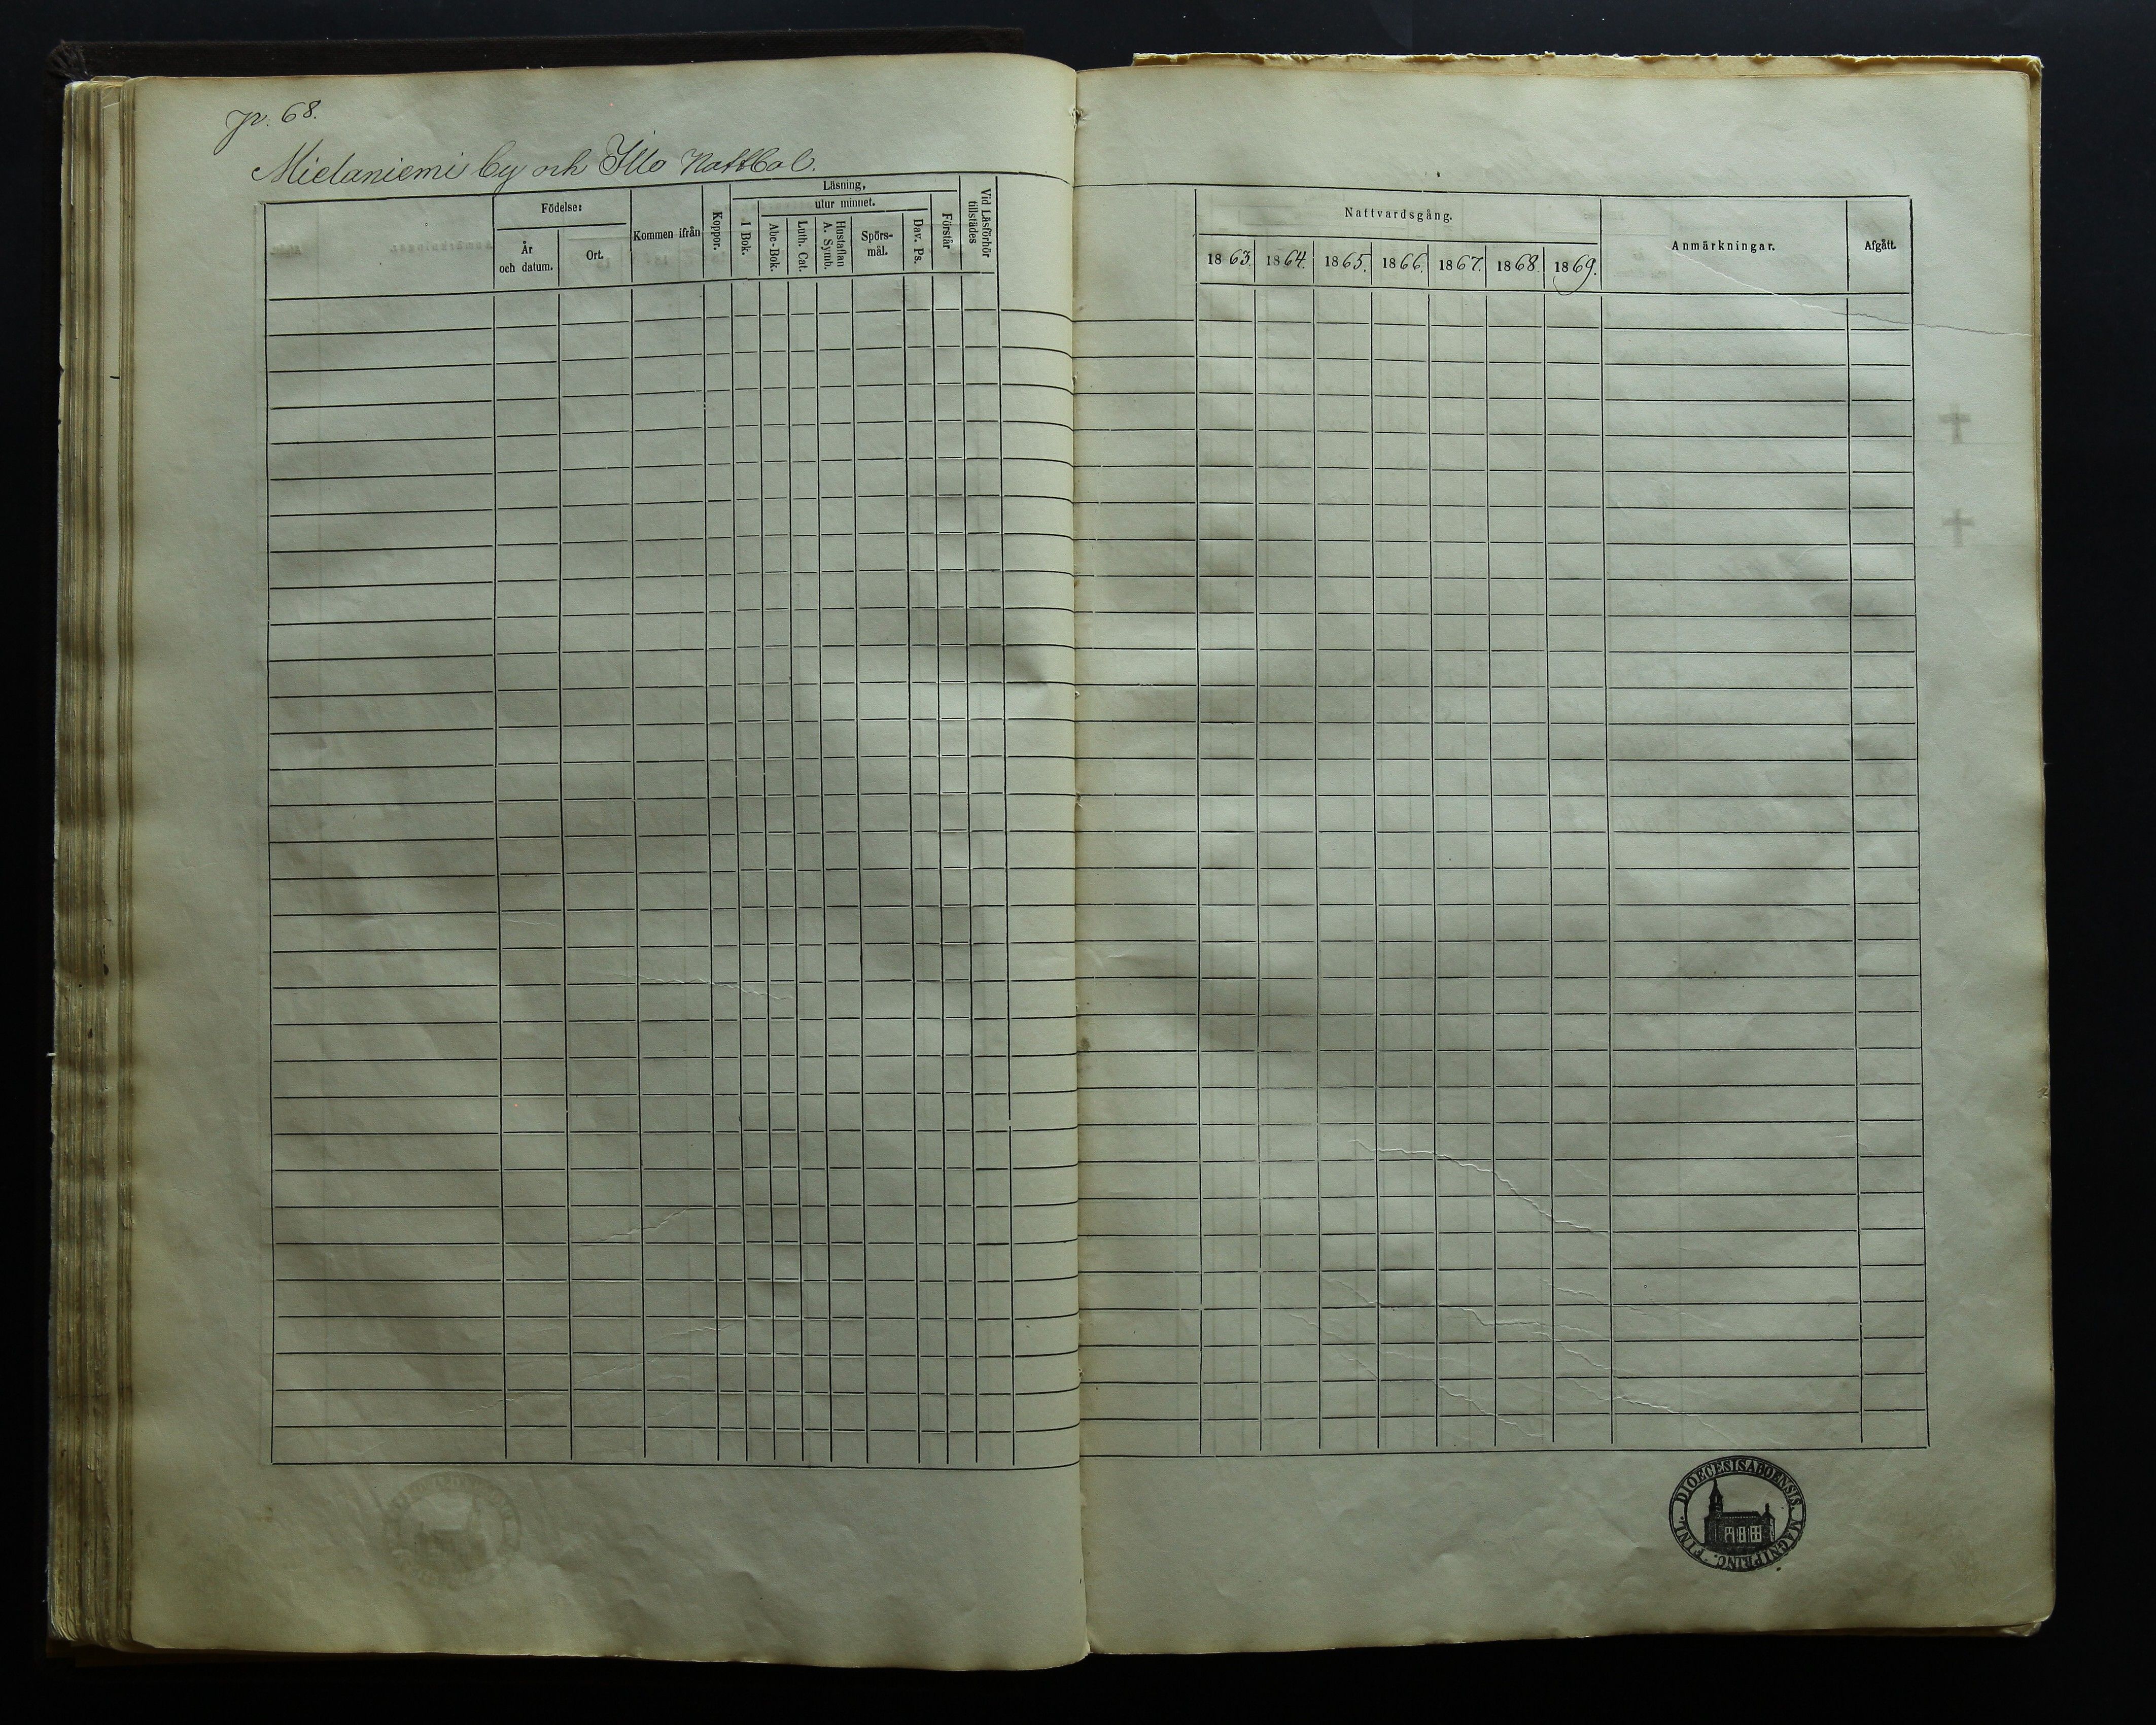 p. 68.
Mielaniemi by och Illo Rottbol.
Födelse:
År och datum.
Ort.
Kommen ifrån
Koppor.
Läsning,
I Bok.
utur minnet.
Abc-Bok.
Luth. Cat.
Hustaflan A. Symb.
Spörs-mål.
Dav. Ps.
Förstår
Vid Läsförhör tillstädes
Nattvardsgång.
1863. 1864. 1865. 1866. 1867. 1868. 1869.
Anmärkningar.
Afgått.
DIOECESIS ABOENSIS. MAGNI PRINC. FINL.